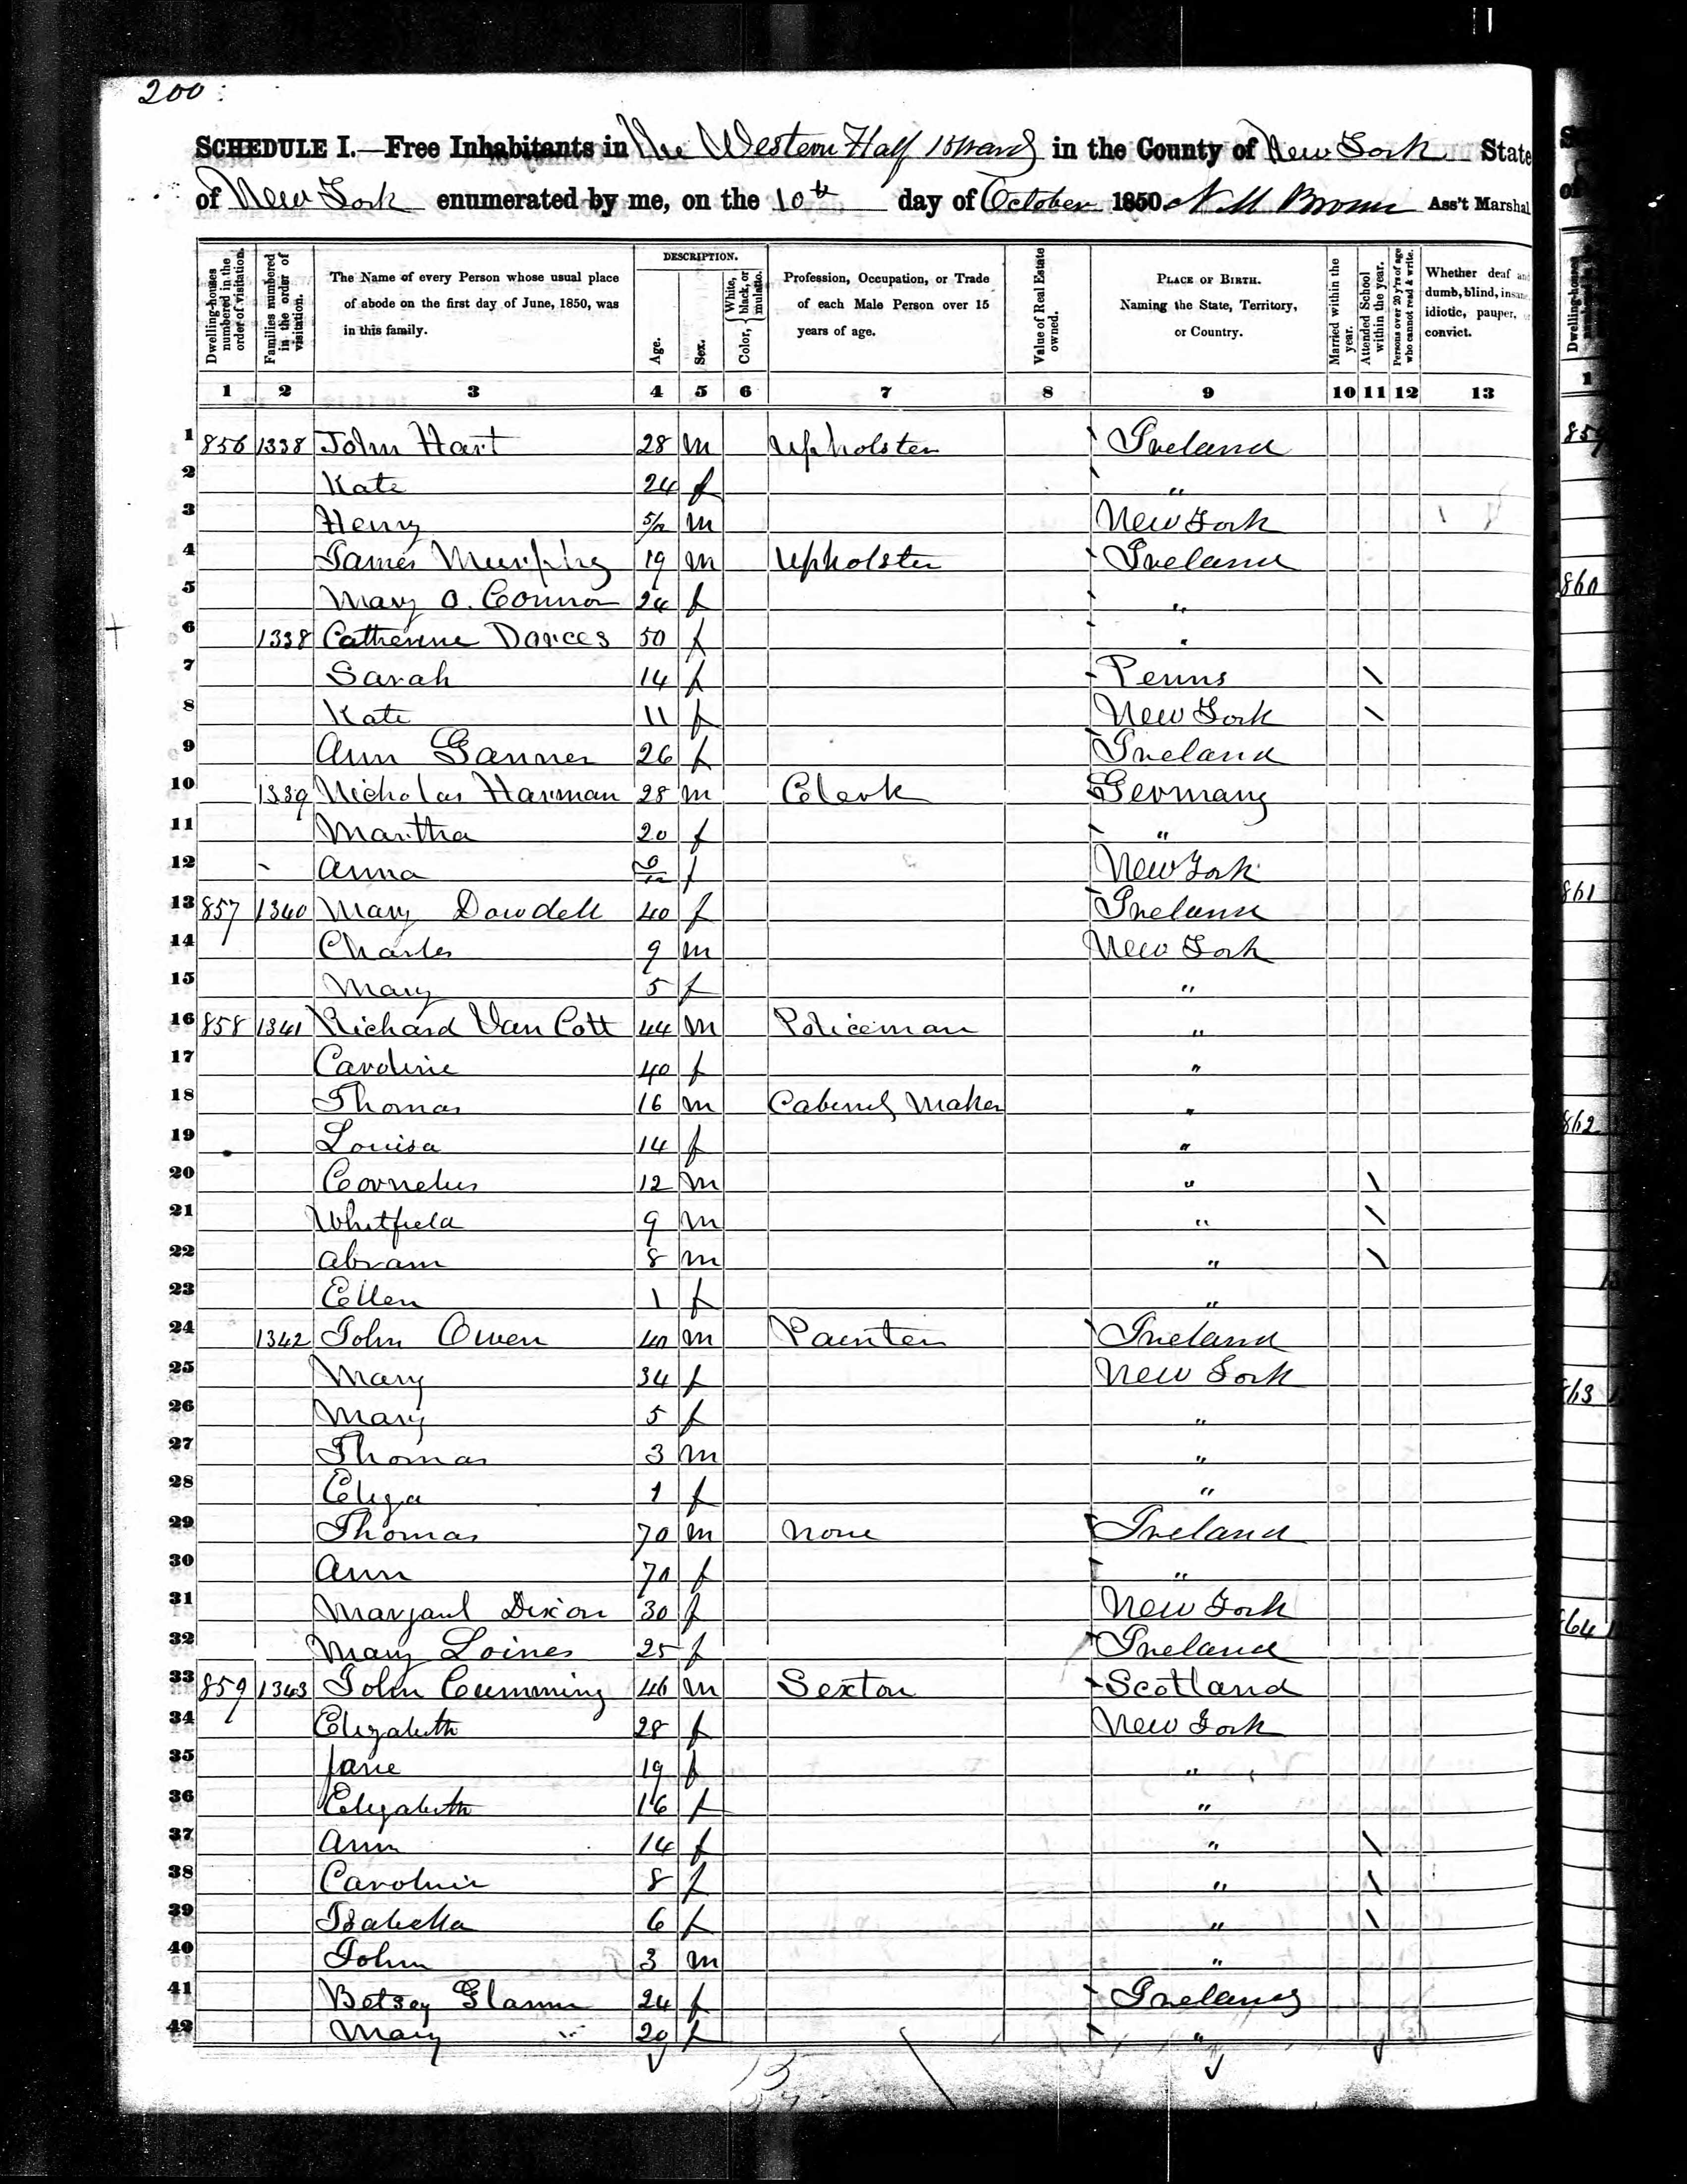 200
SCHEDULE I.—Free Inhabitants in the Western Half 15 Ward in the County of New York State
of New York enumerated by me, on the 10th day of October 1850. Ass't Marshal
DESCRIPTION.
Dwelling-houses numbered in the order of visitation.
Families numbered in the order of visitation.
The Name of every Person whose usual place of abode on the first day of June, 1850, was in this family.
Age.
Sex.
Color, { White, black, or mulatto.
Profession, Occupation, or Trade of each Male Person over 15 years of age.
Value of Real Estate owned.
PLACE OF BIRTH. Naming the State, Territory, or Country.
Married within the year.
Attended School within the year.
Persons over 20 y'rs of age who cannot read & write.
Whether deaf and dumb, blind, insane, idiotic, pauper, or convict.
1 2 3 4 5 6 7 8 9 10 11 12 13
1 856 1338 John Hart 28 m Upholster Ireland
2 Kate 24 f "
3 Henry 5/12 m New York
4 James Murphy 19 m Upholster Ireland
5 Mary O. Connor 24 f "
6 1338 Catherine 50 f "
7 Sarah 14 f Penns \
8 Kate 11 f New York \
9 Ann Ganner 26 f Ireland
10 1339 Nicholas Harman 28 m Clerk Germany
11 Martha 20 f "
12 Anna 6/12 f New York
13 857 1340 Mary Dowdell 40 f Ireland
14 Charles 9 m New York
15 Mary 5 f "
16 858 1341 Richard Van Cott 44 m Policeman "
17 Caroline 40 f "
18 Thomas 16 m Cabinet Maker "
19 Louisa 14 f "
20 Cornelus 12 m " \
21 Whitfield 9 m " \
22 Abram 8 m " \
23 Ellen 1 f "
24 1342 John Owen 40 m Painter Ireland
25 Mary 34 f New York
26 Mary 5 f "
27 Thomas 3 m "
28 Eliza 1 f "
29 Thomas 70 m None Ireland
30 Ann 70 f "
31 Margaret Dixon 30 f New York
32 Mary Loines 25 f Ireland
33 859 1343 John Cumming 46 m Sexton Scotland
34 Elizabeth 28 f New York
35 Jane 19 f "
36 Elizabeth 16 f "
37 Ann 14 f " \
38 Caroline 8 f " \
39 Isabella 6 f " \
40 John 3 m "
41 Betsey 24 f Ireland
42 Mary " 20 f "
859
860
861
862
863
864